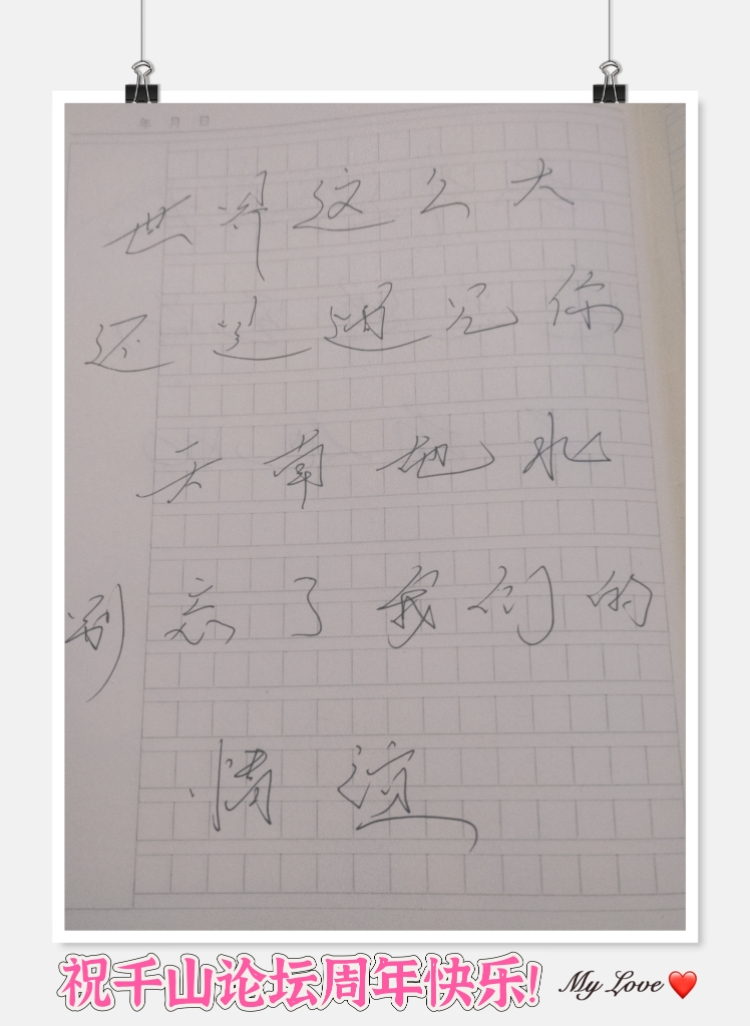 年 月 日
世界这么大
还是遇见你
天南地北
别忘了我们的
情谊
祝千山论坛周年快乐! My Love